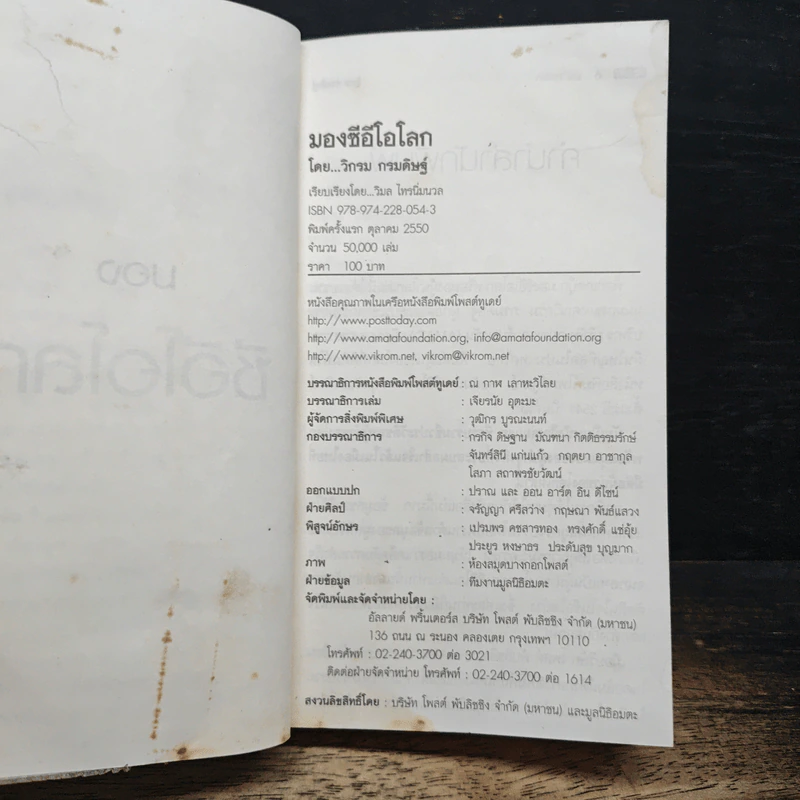 มองซีอีโอโลก
โดย...วิกรม กรมดิษฐ์
เรียบเรียงโดย...วิมล ไทรนิ่มนวล
ISBN 978-974-228-054-3
พิมพ์ครั้งแรก ตุลาคม 2550
จำนวน 50,000 เล่ม
ราคา 100 บาท
หนังสือคุณภาพในเครือหนังสือพิมพ์โพสต์ทูเดย์
http://www.posttoday.com
http://www.amatafoundation.org, info@amatafoundation.org
http://www.vikrom.net, vikrom@vikrom.net
บรรณาธิการหนังสือพิมพ์โพสต์ทูเดย์ : ณ กาฬ เลาหะวิไลย
บรรณาธิการเล่ม : เจียรนัย อุตะมะ
ผู้จัดการสิ่งพิมพ์พิเศษ : วุฒิกร บูรณะนนท์
กองบรรณาธิการ : กรกิจ ดิษฐาน มัณฑนา กิตติธรรมรักษ์
จันทร์สินี แก่นแก้ว กฤตยา อาชากุล
โสภา สถาพรชัยวัฒน์
ออกแบบปก : ปราณ และ ออน อาร์ต อิน ดีไซน์
ฝ่ายศิลป์ : จรัญญา ศรีสว่าง กฤษณา พันธ์แลวง
พิสูจน์อักษร : เปรมพร คชสารทอง ทรงศักดิ์ แซ่อุ้ย
ประยูร หงษาธร ประดับสุข บุญมาก
ภาพ : ห้องสมุดบางกอกโพสต์
ฝ่ายข้อมูล : ทีมงานมูลนิธิอมตะ
จัดพิมพ์และจัดจำหน่ายโดย :
อัลลายด์ พริ้นเตอร์ส บริษัท โพสต์ พับลิชชิง จำกัด (มหาชน)
136 ถนน ณ ระนอง คลองเตย กรุงเทพฯ 10110
โทรศัพท์ : 02-240-3700 ต่อ 3021
ติดต่อฝ่ายจัดจำหน่าย โทรศัพท์ : 02-240-3700 ต่อ 1614
สงวนลิขสิทธิ์โดย : บริษัท โพสต์ พับลิชชิง จำกัด (มหาชน) และมูลนิธิอมตะ